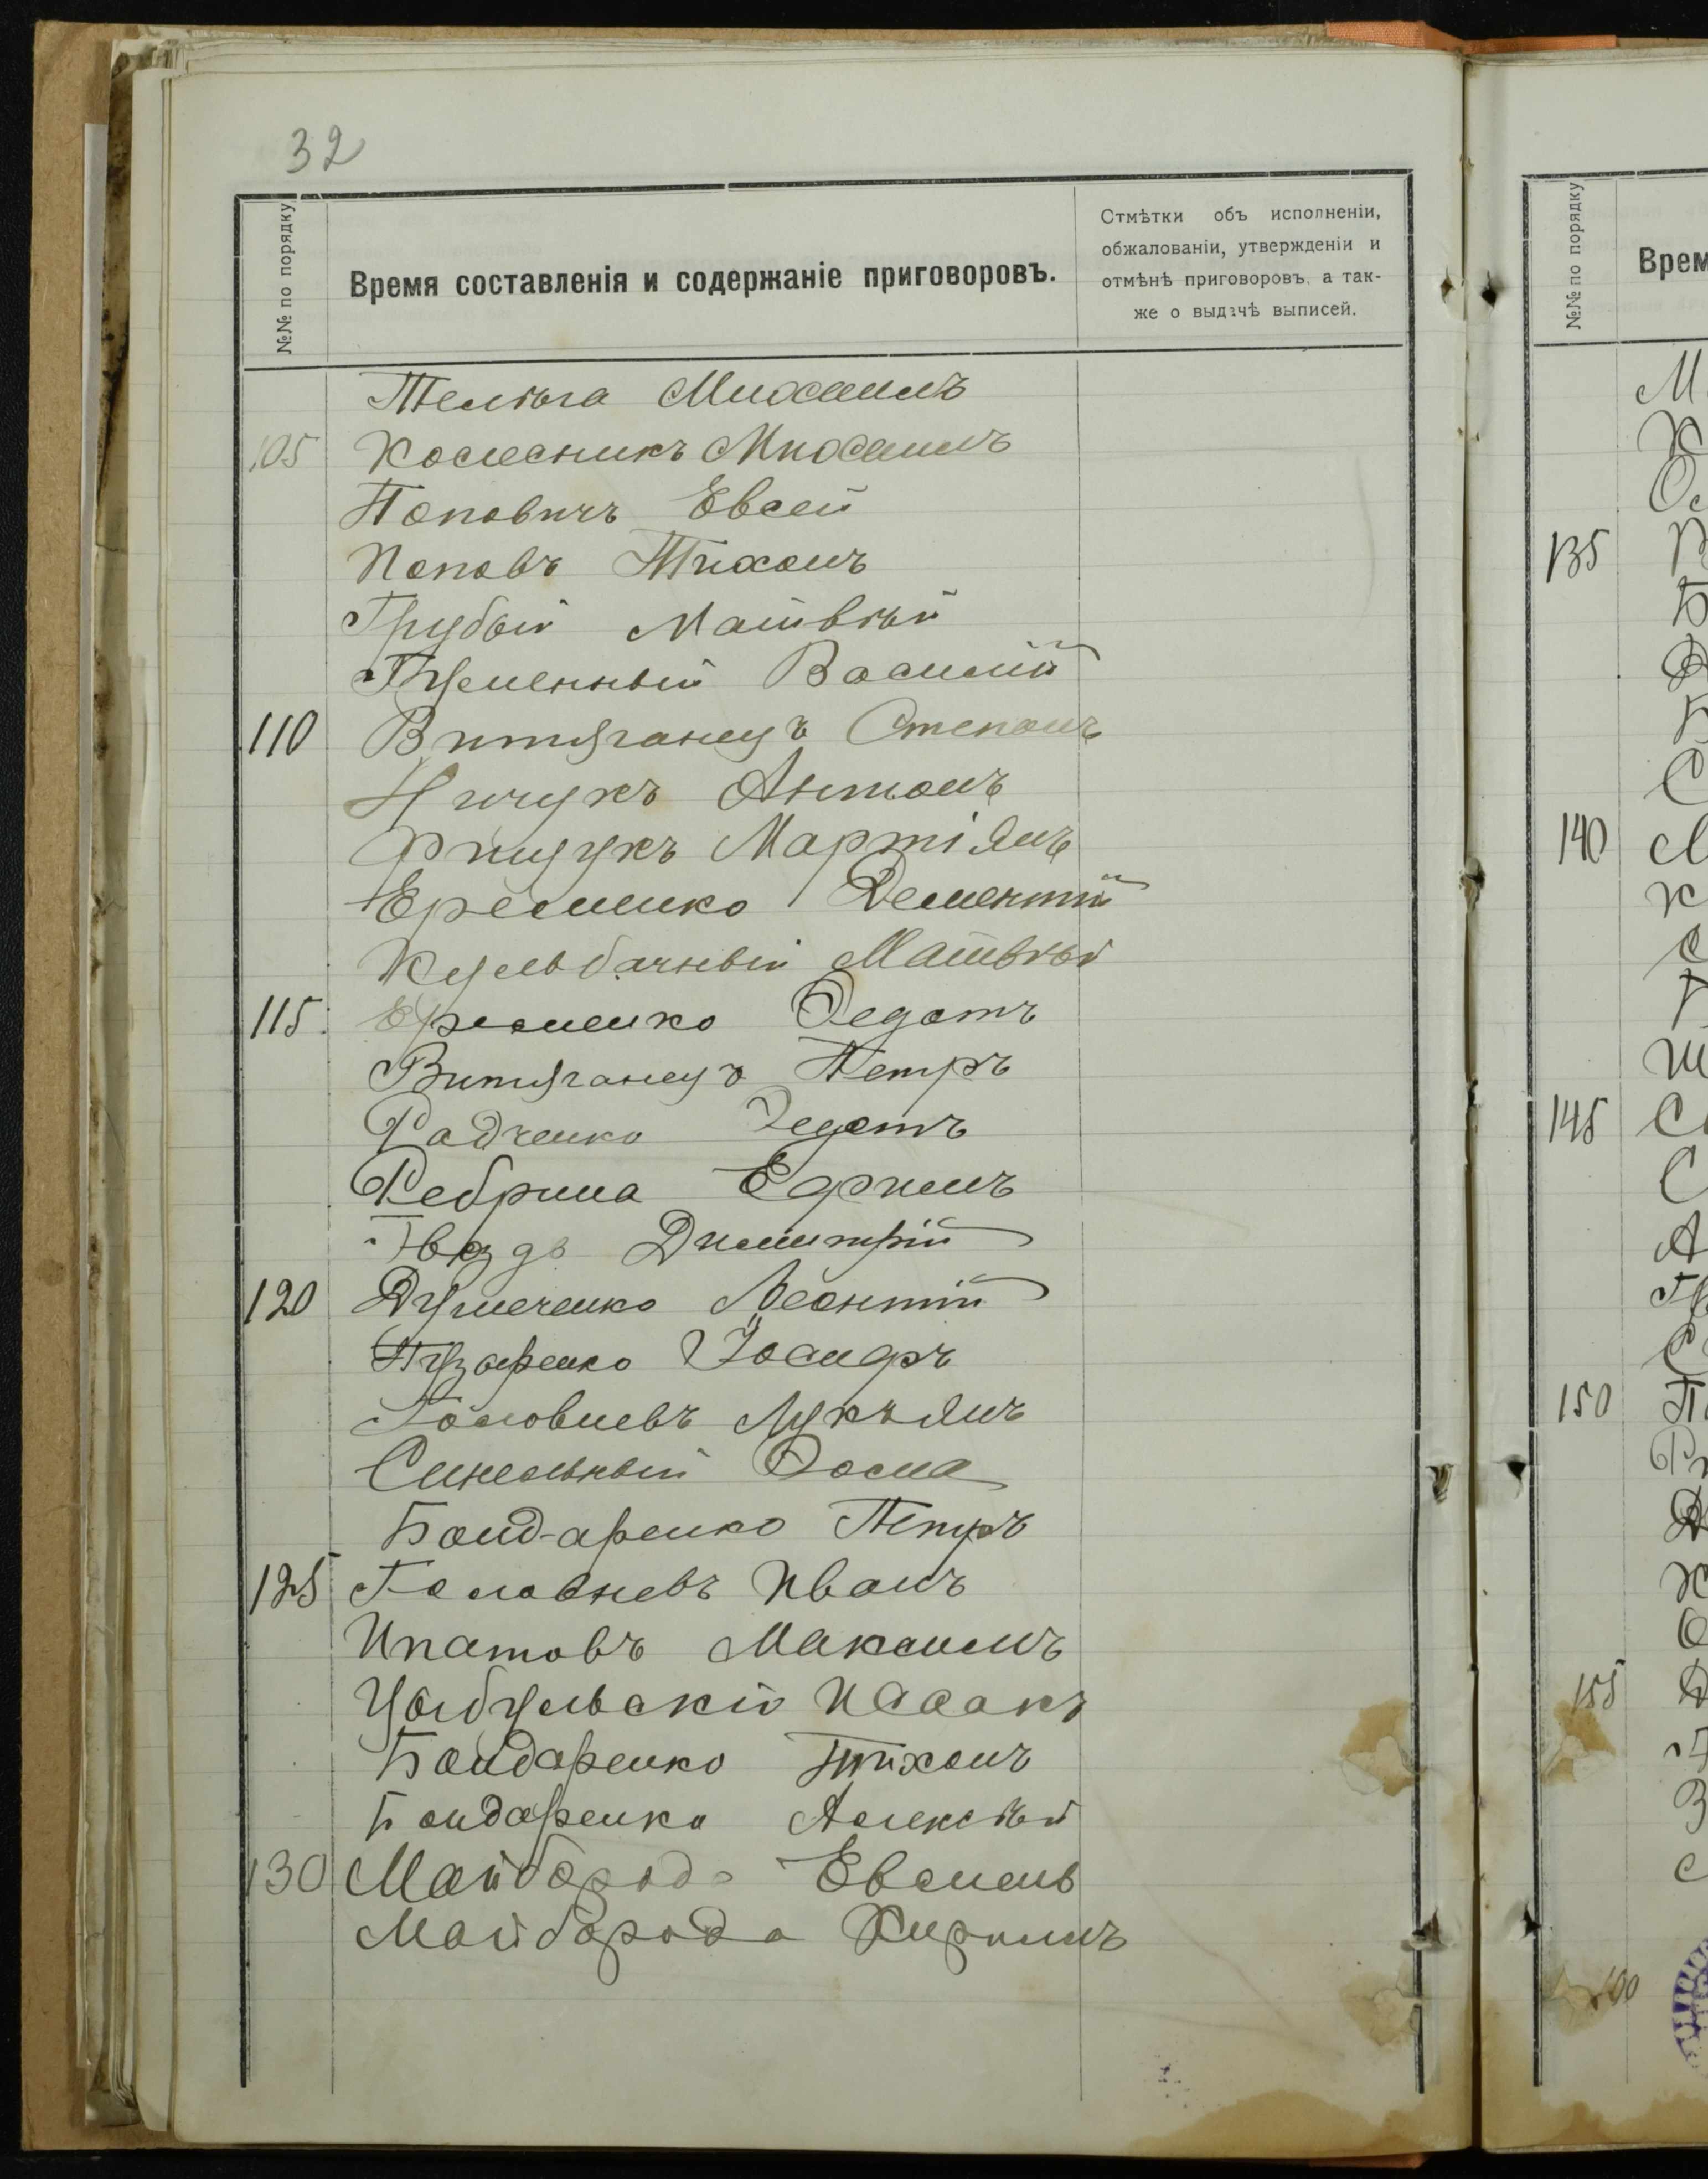 32
№№ по порядку
Время составленія и содержаніе приговоровъ.
Отмѣтки объ исполненіи,
обжалованіи, утвержденіи и
отмѣнѣ приговоровъ, а так-
же о выдачѣ выписей.
Телѣга Михаилъ
105 Колесникъ Михаилъ
Поповичъ Евсей
Поповъ Тихонъ
Грубый Матвѣй
Гуменный Василій
110 Витяганецъ Степанъ
Антонъ
Мартіянъ
Еременко Дементій
Кульбачный Матвѣй
115 Еременко Федотъ
Витяганецъ Петръ
Радченко Федотъ
Ребрина Ефимъ
Гвоздь Димитрій
120 Думеченко Леонтій
Пузыренко Іосифъ
Головневъ Лукъянъ
Синельный Фома
Бондаренко Петръ
125 Головневъ Иванъ
Ипатовъ Максимъ
Цыбульскій Исаакъ
Бондаренко Тихонъ
Бондаренко Алексѣй
130 Майборода Евсмень
Майборода Кирилъ
№№ по порядку
Врем
135
140
145
150
155
160